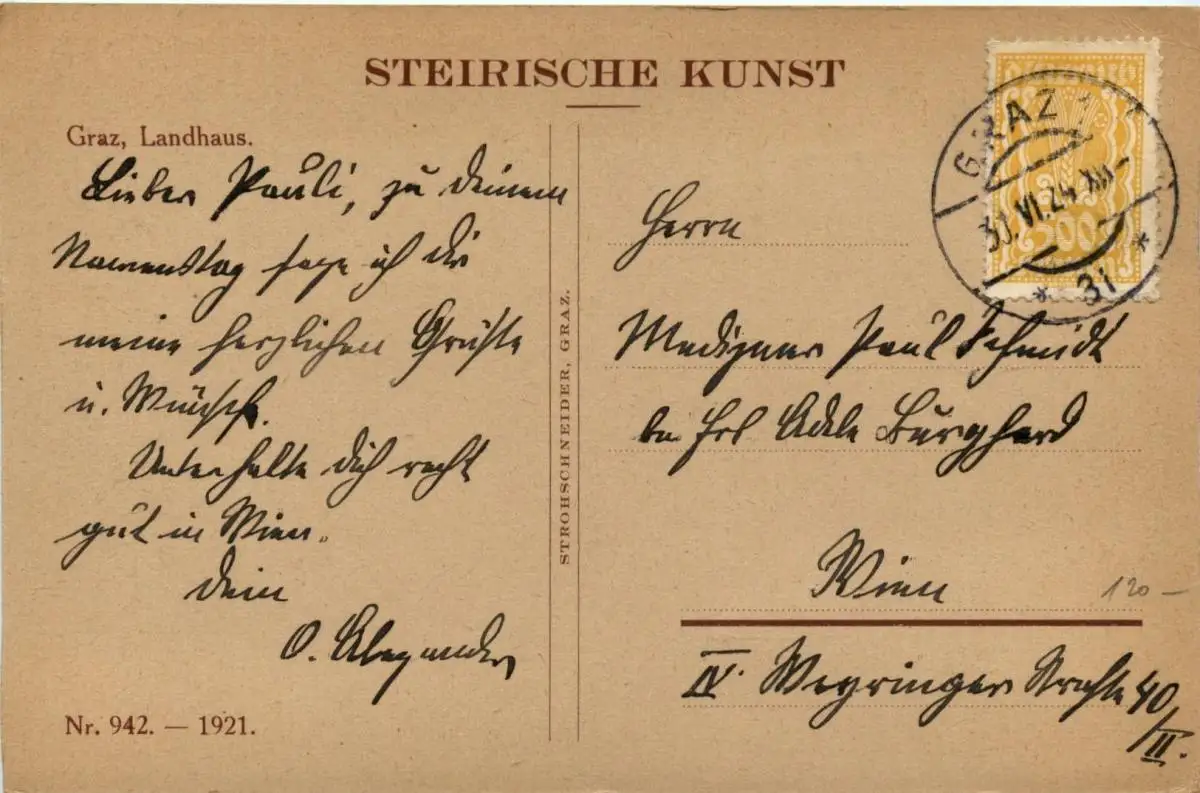 STEIRISCHE KUNST
Graz, Landhaus.
Lieber Pauli, zu deinem
Namenstag sage ich dir
meine herzlichen Grüße
u. Wünsche.
Unterhalte dich recht
gut in Wien.
Dein
O. Alexander
Nr. 942. — 1921.
STROHSCHNEIDER, GRAZ.
GRAZ 1
30. VI. 24 XII
* 3i *
300
Herrn
Mediziner Paul Schmidt
bei Frl Adele Burghard
Wien
120 —
IV. Weyringer Straße 40/II.